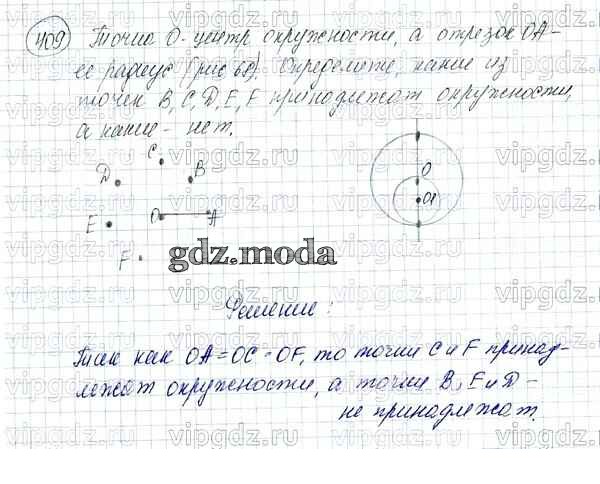 409 Точка О - центр окружности, а отрезок ОА -
её радиус (рис 68). Определите, какие из
точек B, C, D, E, F принадлежат окружности,
а какие - нет.
C
D B
O
O1
E O A
F
gdz.moda
Решение:
Так как OA = OC = OF, то точки C и F принад-
лежат окружности, а точки B, E и D -
не принадлежат.
vipgdz.ru